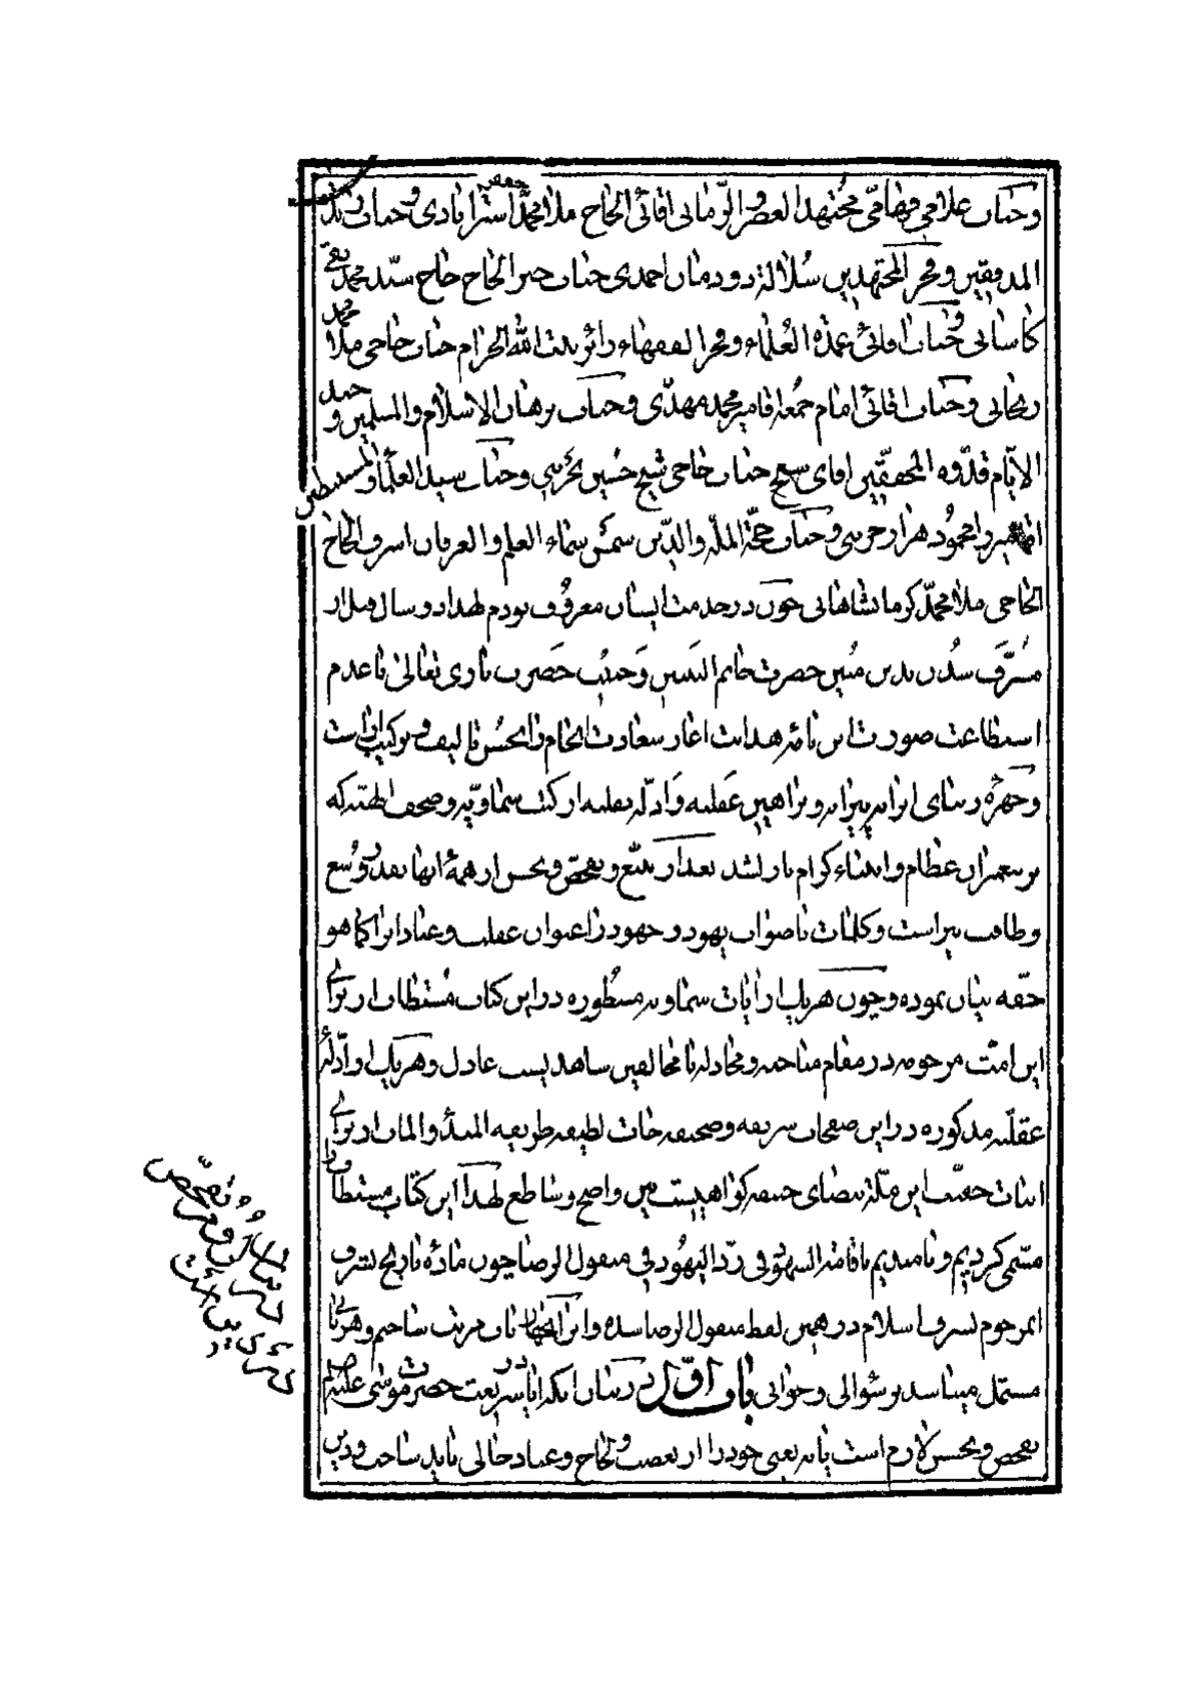 وجناب علامی فهامی مجتهد العصر والزمانی اقائی الحاج ملا محمد جعفر استرابادی وجناب
المدققین وفخر المجتهدین سلالة دودمان احمدی جناب خیر الحاج حاج سید محمد تقی
کاشانی وجناب اقائی عمدة العلماء وفخر الفقهاء زائر بیت الله الحرام جناب حاجی ملا محمد
زنجانی وجناب اقائی امام جمعه اقا میر محمد مهدی وجناب برهان الاسلام والمسلمین و
الایام قدوه المحققین اقای شیخ جناب حاجی شیخ حسین بحرینی وجناب سید العلماء والمستبطین
میرزا محمود هزار جریبی وجناب حجة الملة والدین شمس سماء العلم والعرفان اشرف الحاج
الحاجی ملا محمد کرمانشاهانی چون در خدمت ایشان معروف بودم لهذا دو سال قبل از
مشرف شدن بدین مبین حضرت خاتم النبیین وحبیب حضرت باری تعالی با عدم
استطاعت صورت این نامه هدایت اغاز سعادت انجام را بحسن تالیف وترکیب اراست
وچهره زیبای انرا به پیرایه وبراهین عقلیه وادله نقلیه از کتب سماویه وصحف الهیه که
بر پیغمبران عظام وانبیاء کرام نازل شد بعد از تتبع وتفحص وتجسس از همهٔ انها بقدر وسع
وطاقت پیراست وکلمات ناصواب یهود وجهود را عنوان عقلیت وعناد انرا کما هو
حقه بیان نموده وچون هر یک از ایات سماویه مسطوره در این کتاب مستطاب از برای
این امت مرحومه در مقام مباحثه ومجادله با مخالفین شاهدیست عادل وهر یک از ادلهٔ
عقلیه مذکوره در این صفحات شریفه وصحیفه جات لطیفه طریقه المبدأ والماب از برای
اثبات حقیت این ملة بیضای حنیفه کواهیست مبین واضح وساطع لهذا این کتاب مستطاب را
مسمی کردیم ونامیدیم باقامة الشهود فی رد الیهود فی منقول الرضا چون مادهٔ تاریخ تشرف
انمرحوم بشرف اسلام در همین لفظ منقول الرضا شده وانرا باب مرتب ساختیم وهر بابی
مشتمل میباشد بر سؤالی وجوابی باب اول در بیان اینکه ایا در شریعت حضرت موسی علیه السلم
تفحص وتجسس لازم است یا نه یعنی خود را از تعصب ولجاج وعناد خالی باید ساخت ودین